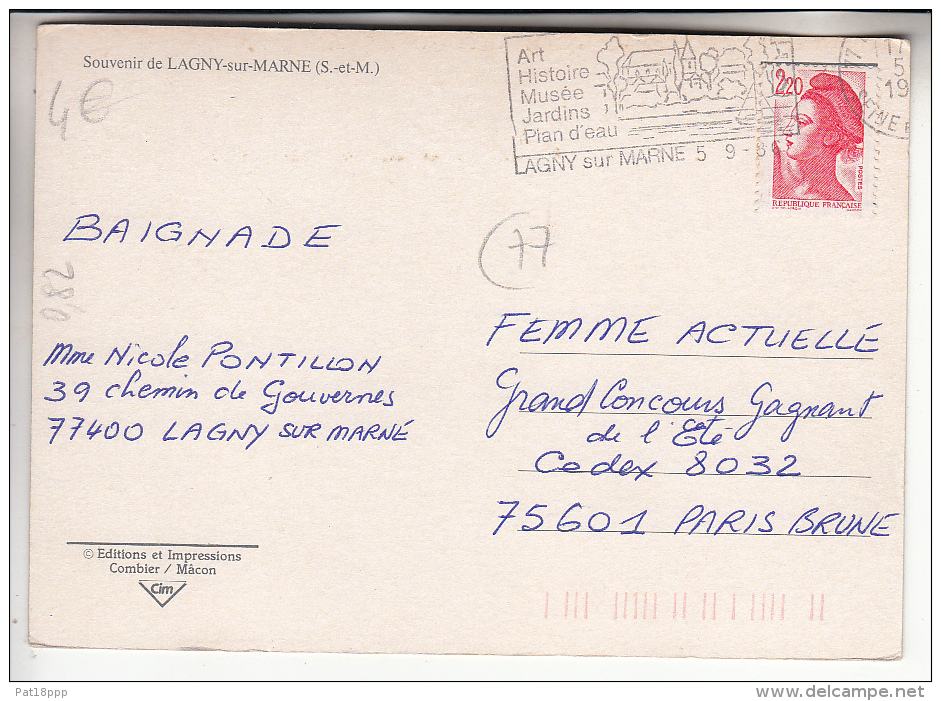 Souvenir de LAGNY-sur-MARNE (S.-et-M.)
4€
Art
Histoire
Musée
Jardins
Plan d'eau
LAGNY sur MARNE 5 9-
17
5
19
2,20
POSTES
REPUBLIQUE FRANÇAISE
BAIGNADE
(77
0,82
Mme Nicole PONTILLON
39 chemin de Gouvernes
77400 LAGNY SUR MARNE
FEMME ACTUELLE
Grand Concours Gagnant
de l'Eté
Cedex 8032
75601 PARIS BRUNE
© Editions et Impressions
Combier / Mâcon
Cim
Pat18ppp
www.delcampe.net